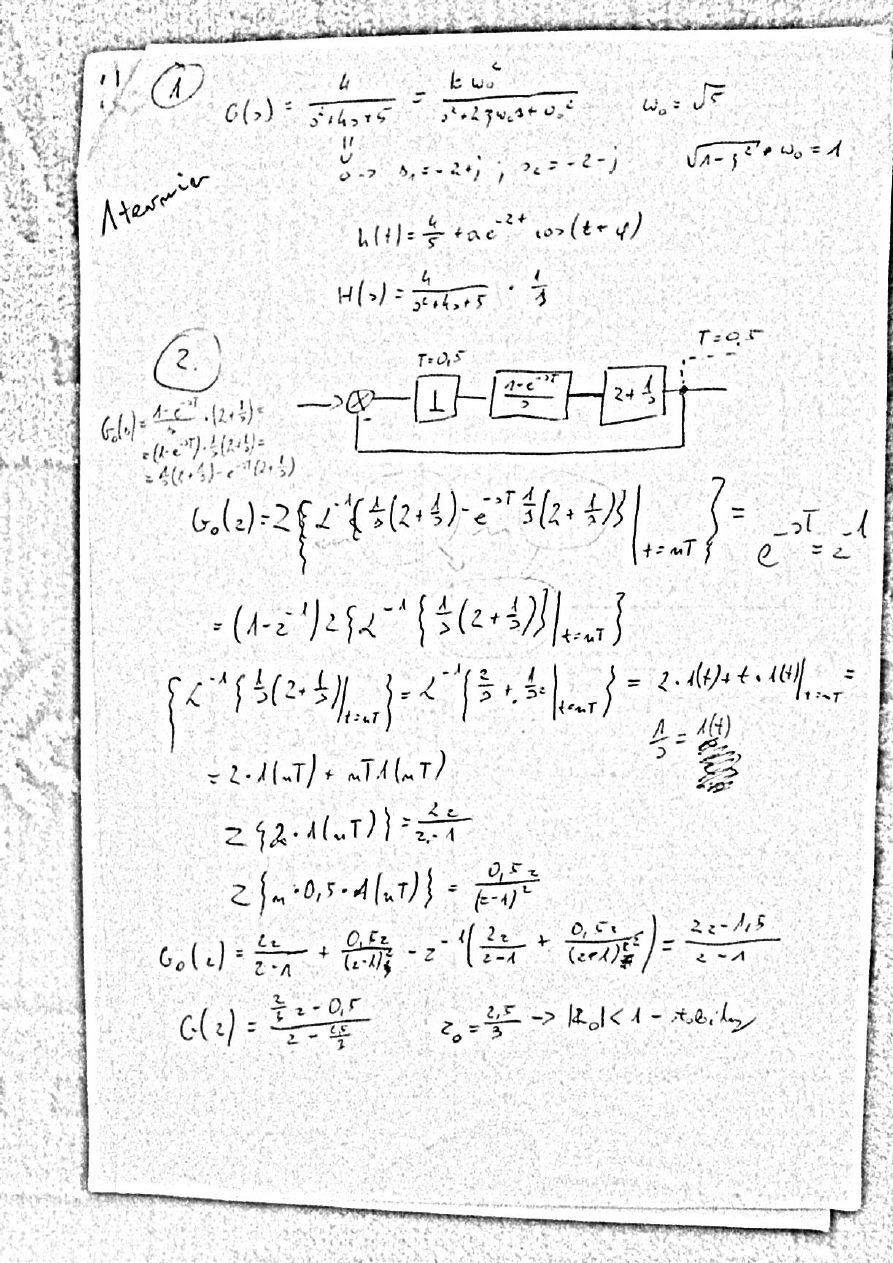 1
G(s) = 4/(s²+4s+5) = kω₀²/(s²+2ξω₀s+ω₀²)   ω₀ = √5
0 -> s₁=-2+j ; s₂=-2-j   √(1-ξ²) * ω₀ = 1
1 termin
h(t) = 4/5 + ae^(-2t) cos(t+φ)
H(s) = 4/(s²+4s+5) · 1/s
2.
T=0,5
T=0,5
(1-e^(-sT))/s
2+1/s
-
G₀(s) = (1-e^(-sT))/s · (2+1/s) =
= (1-e^(-sT)) · 1/s (2+1/s) =
= 1/s (2+1/s) - e^(-sT) (2+1/s)
G₀(z) = Z{ℒ⁻¹{1/s (2+1/s) - e^(-sT) 1/s (2+1/s)}|t=nT} =   e^(-sT) = z⁻¹
= (1-z⁻¹) Z{ℒ⁻¹{1/s (2+1/s)}|t=nT}
{ℒ⁻¹{1/s (2+1/s)|t=nT} = ℒ⁻¹{2/s + 1/s²|t=nT} = 2·1(t) + t·1(t)|t=nT =
1/s = 1(t)
= 2·1(nT) + nT1(nT)
Z{2·1(nT)} = 2z/(z-1)
Z{n·0,5·1(nT)} = 0,5z/(z-1)²
G₀(z) = 2z/(z-1) + 0,5z/(z-1)² - z⁻¹(2z/(z-1) + 0,5z/(z-1)²) = (2z-1,5)/(z-1)
G(z) = (2/3 z - 0,5)/(z - 2,5/3)   z₀ = 2,5/3 -> |z₀| < 1 - stabilny